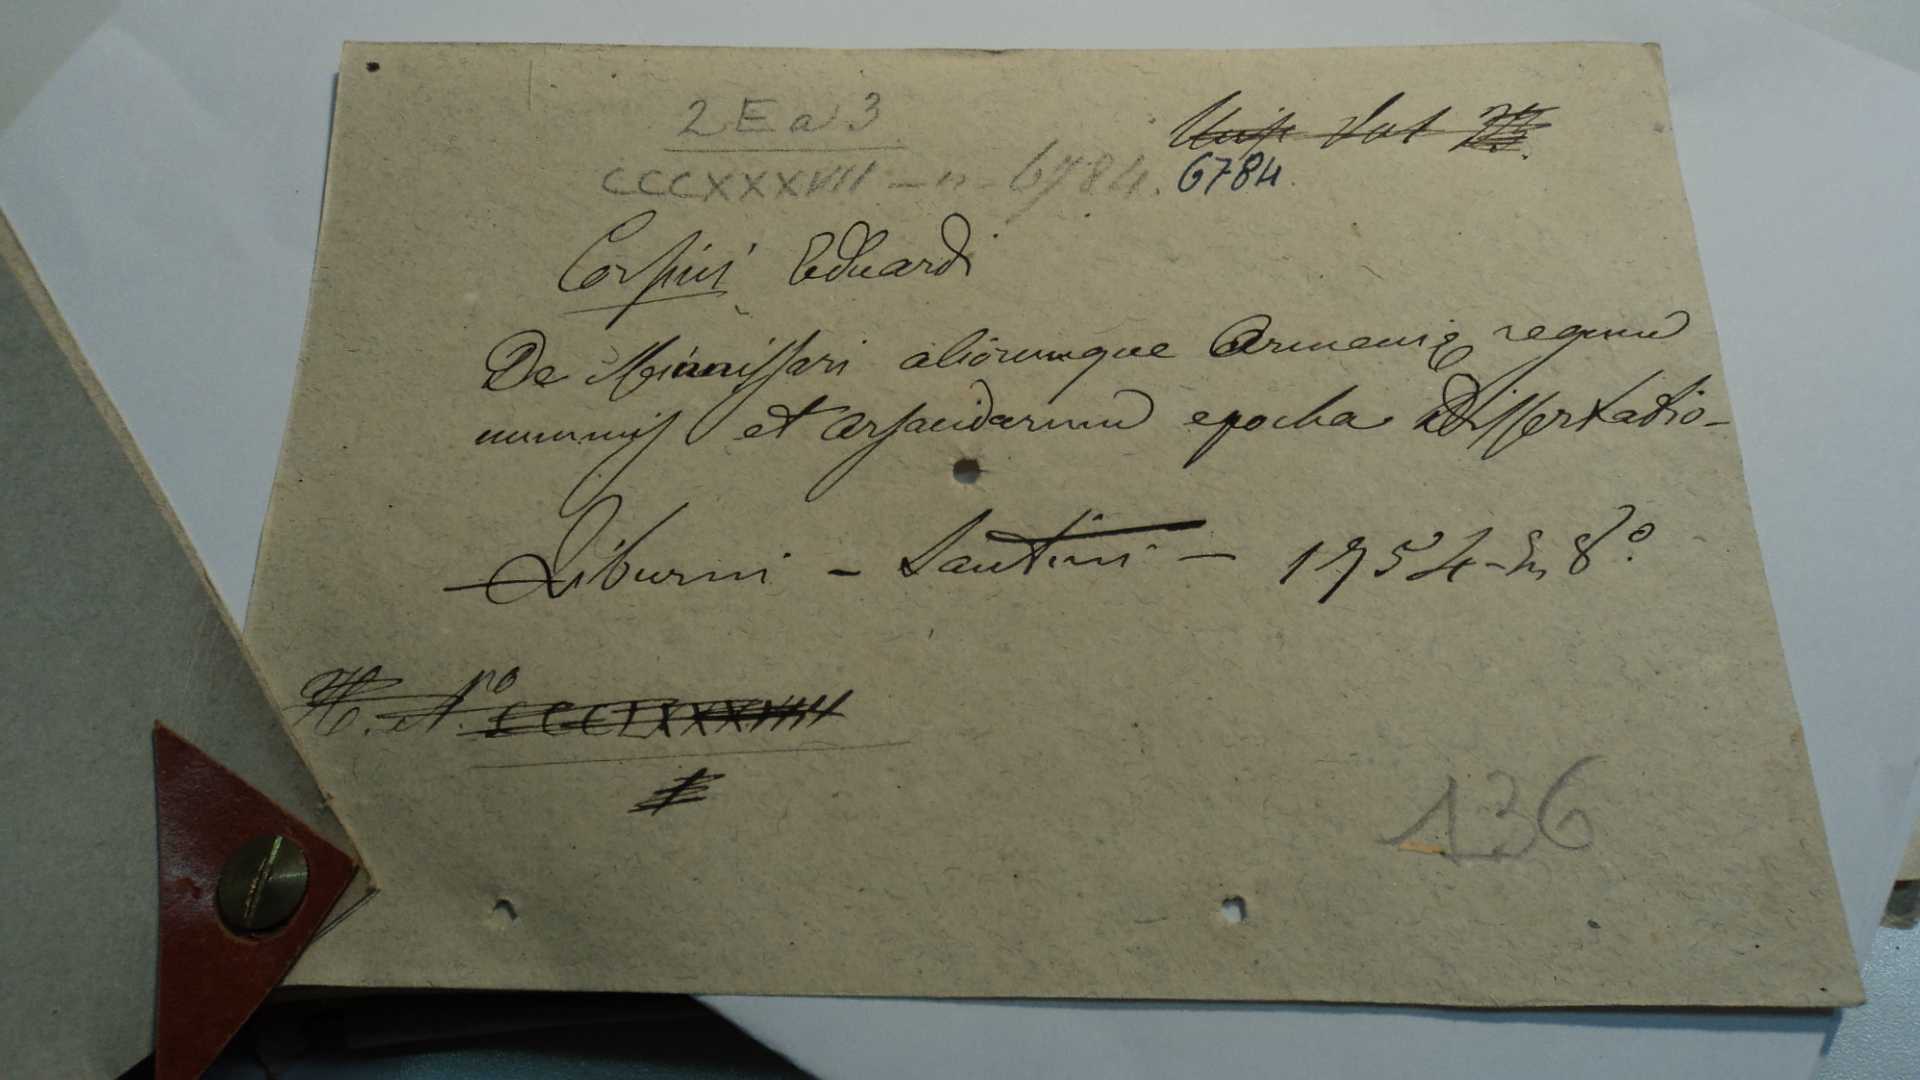 2 E a 3
6784.
CCCXXXVII - n - 6784.
Corsini Eduardi
De Minnisari aliorumque Armenię regum
nummis et Arsacidarum epocha Dissertatio -
Liburni - Santini - 1754 - in 8º.
H. et Nº
136